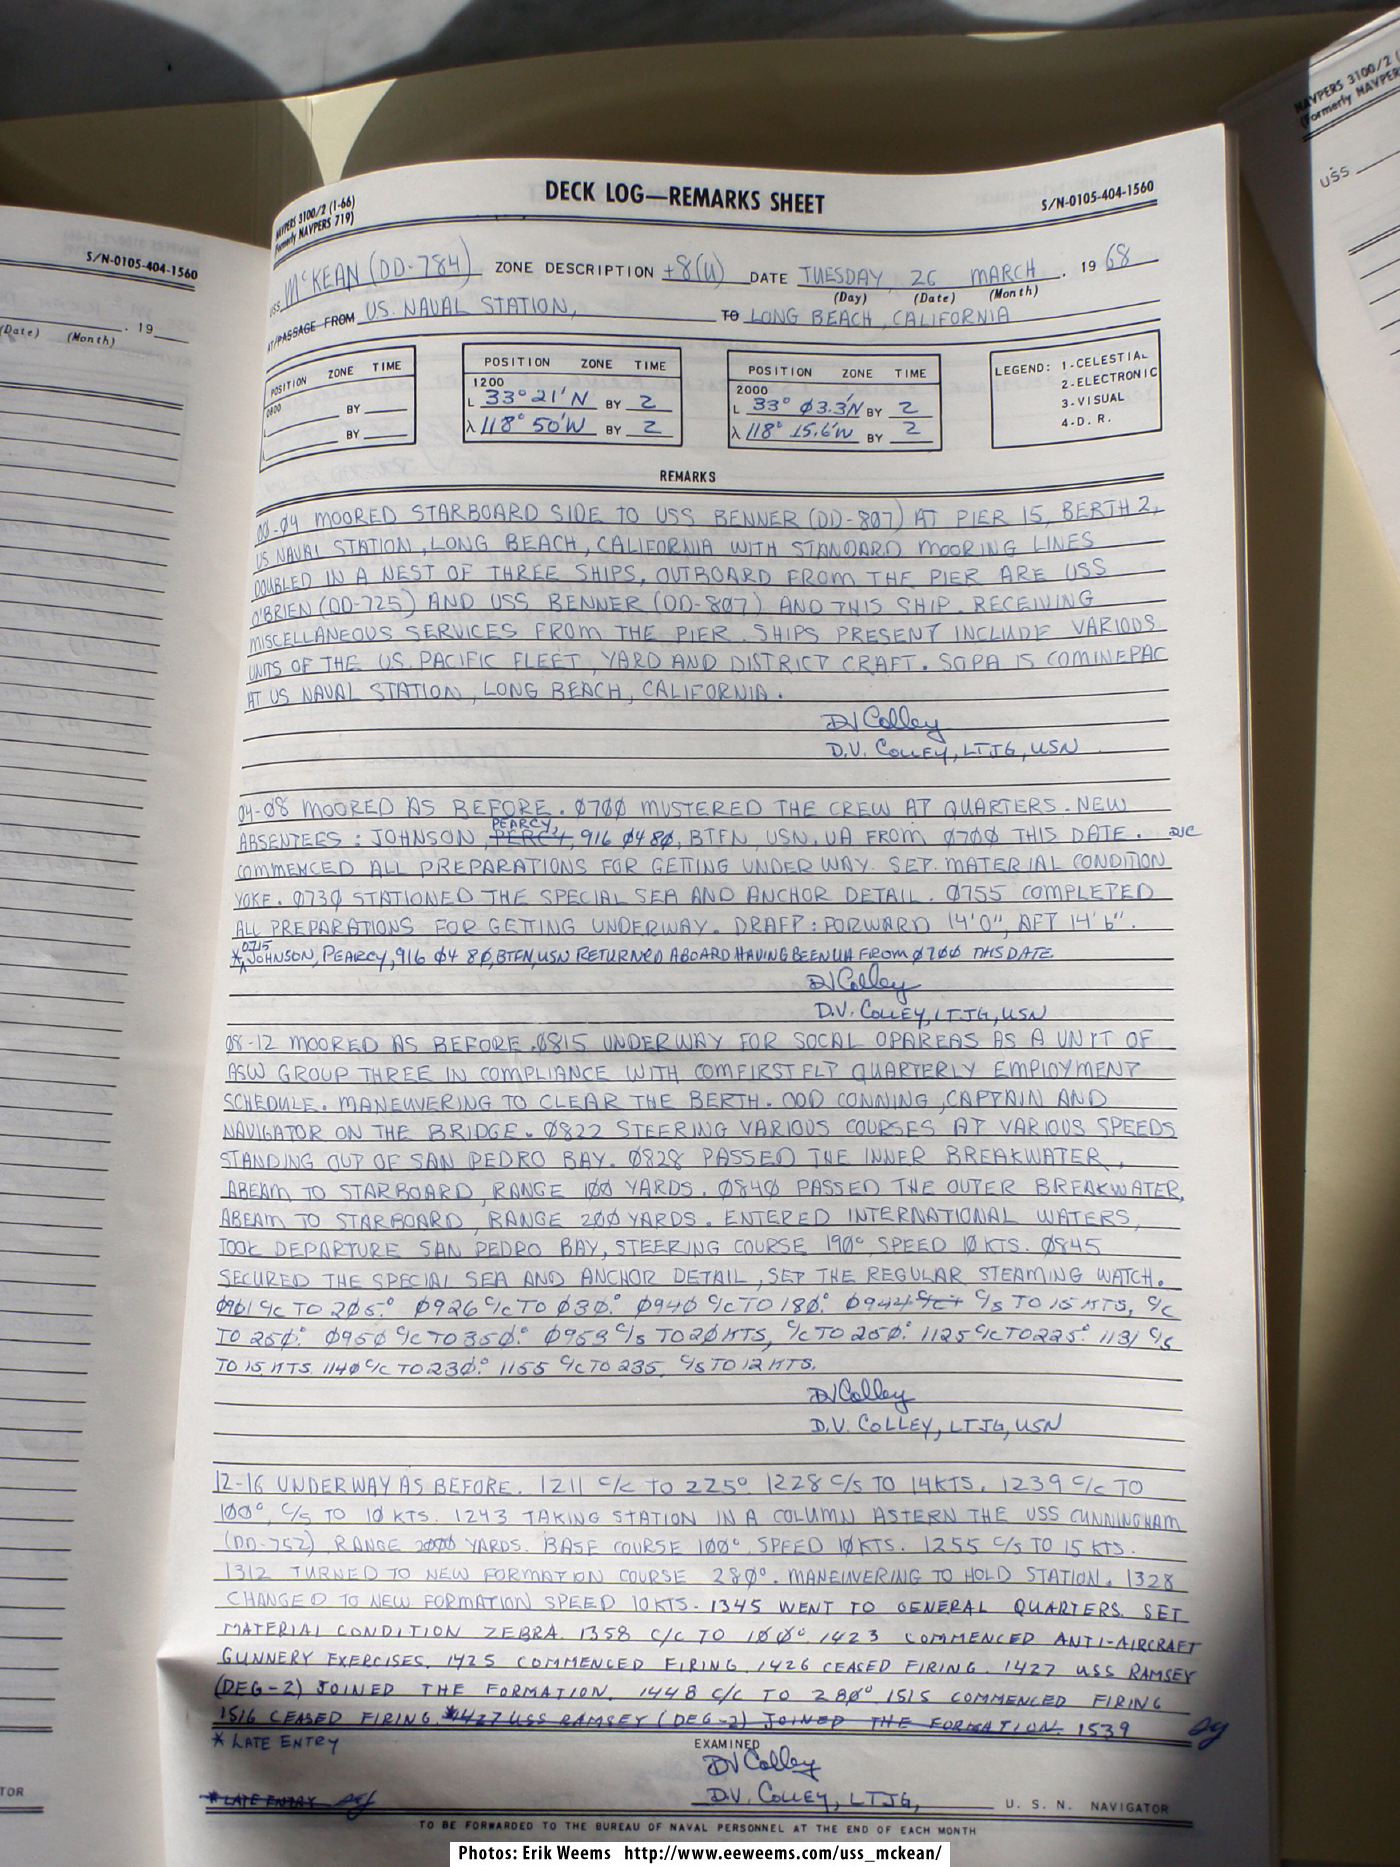 NAVPERS 3100/2 (1-66)
(Formerly NAVPERS 719)
DECK LOG—REMARKS SHEET
S/N-0105-404-1560
USS McKEAN (DD-784) ZONE DESCRIPTION +8(U) DATE TUESDAY 26 MARCH . 19 68
(Day) (Date) (Month)
AT/PASSAGE FROM US. NAVAL STATION, TO LONG BEACH, CALIFORNIA
POSITION ZONE TIME
0800
L BY
λ BY
POSITION ZONE TIME
1200
L 33° 21'N BY 2
λ 118° 50'W BY 2
POSITION ZONE TIME
2000
L 33° Ø3.3'N BY 2
λ 118° 15.6'W BY 2
LEGEND: 1-CELESTIAL
2-ELECTRONIC
3-VISUAL
4-D. R.
REMARKS
00-04 MOORED STARBOARD SIDE TO USS BENNER (DD-807) AT PIER 15, BERTH 2,
US NAVAL STATION, LONG BEACH, CALIFORNIA WITH STANDARD MOORING LINES
DOUBLED IN A NEST OF THREE SHIPS, OUTBOARD FROM THE PIER ARE USS
O'BRIEN (DD-725) AND USS BENNER (DD-807) AND THIS SHIP. RECEIVING
MISCELLANEOUS SERVICES FROM THE PIER. SHIPS PRESENT INCLUDE VARIOUS
UNITS OF THE US. PACIFIC FLEET, YARD AND DISTRICT CRAFT. SOPA IS COMINEPAC
AT US NAVAL STATION, LONG BEACH, CALIFORNIA.
DV Colley
D.V. COLLEY, LTJG, USN
04-08 MOORED AS BEFORE. Ø7ØØ MUSTERED THE CREW AT QUARTERS. NEW
PEARCY,
ABSENTEES: JOHNSON, PERCY, 916 Ø4 8Ø, BTFN, USN. UA FROM Ø7ØØ THIS DATE. DVC
COMMENCED ALL PREPARATIONS FOR GETTING UNDER WAY. SET MATERIAL CONDITION
YOKE. Ø73Ø STATIONED THE SPECIAL SEA AND ANCHOR DETAIL. Ø755 COMPLETED
ALL PREPARATIONS FOR GETTING UNDERWAY. DRAFT: FORWARD 14'0", AFT 14'6".
0715
* JOHNSON, PEARCY, 916 Ø4 8Ø, BTFN, USN RETURNED ABOARD HAVING BEEN UA FROM Ø7ØØ THIS DATE.
DV Colley
D.V. COLLEY, LTJG, USN
08-12 MOORED AS BEFORE. Ø815 UNDERWAY FOR SOCAL OPAREAS AS A UNIT OF
ASW GROUP THREE IN COMPLIANCE WITH COMFIRSTFLT QUARTERLY EMPLOYMENT
SCHEDULE. MANEUVERING TO CLEAR THE BERTH. OOD CONNING, CAPTAIN AND
NAVIGATOR ON THE BRIDGE. Ø822 STEERING VARIOUS COURSES AT VARIOUS SPEEDS
STANDING OUT OF SAN PEDRO BAY. Ø828 PASSED THE INNER BREAKWATER,
ABEAM TO STARBOARD, RANGE 1ØØ YARDS. Ø84Ø PASSED THE OUTER BREAKWATER,
ABEAM TO STARBOARD, RANGE 2ØØ YARDS. ENTERED INTERNATIONAL WATERS,
TOOK DEPARTURE SAN PEDRO BAY, STEERING COURSE 190° SPEED 1Ø KTS. Ø845
SECURED THE SPECIAL SEA AND ANCHOR DETAIL, SET THE REGULAR STEAMING WATCH.
Ø9Ø1 C/C TO 2Ø5.° Ø926 C/C TO Ø3Ø.° Ø94Ø C/C TO 18Ø.° Ø944 C/C+ C/S TO 15 KTS, C/C
TO 25Ø.° Ø95Ø C/C TO 35Ø.° Ø953 C/S TO 2Ø KTS, C/C TO 25Ø.° 1125 C/C TO 225.° 1131 C/S
TO 15 KTS. 114Ø C/C TO 23Ø.° 1155 C/C TO 235, C/S TO 12 KTS.
DV Colley
D.V. COLLEY, LTJG, USN
12-16 UNDERWAY AS BEFORE. 1211 C/C TO 225° 1228 C/S TO 14 KTS. 1239 C/C TO
1ØØ°, C/S TO 1Ø KTS. 1243 TAKING STATION IN A COLUMN ASTERN THE USS CUNNINGHAM
(DD-752) RANGE 2ØØØ YARDS. BASE COURSE 1ØØ°, SPEED 1Ø KTS. 1255 C/S TO 15 KTS.
1312 TURNED TO NEW FORMATION COURSE 28Ø°. MANEUVERING TO HOLD STATION. 1328
CHANGED TO NEW FORMATION SPEED 10 KTS. 1345 WENT TO GENERAL QUARTERS. SET
MATERIAL CONDITION ZEBRA. 1358 C/C TO 1ØØ°. 1423 COMMENCED ANTI-AIRCRAFT
GUNNERY EXERCISES. 1425 COMMENCED FIRING. 1426 CEASED FIRING. 1427 USS RAMSEY
(DEG-2) JOINED THE FORMATION. 1448 C/C TO 28Ø° 1515 COMMENCED FIRING
1516 CEASED FIRING. *1427 USS RAMSEY (DEG-2) JOINED THE FORMATION. 1539
* LATE ENTRY
EXAMINED
DV Colley
* LATE ENTRY
D.V. COLLEY, LTJG, U. S. N. NAVIGATOR
TO BE FORWARDED TO THE BUREAU OF NAVAL PERSONNEL AT THE END OF EACH MONTH
S/N-0105-404-1560
. 19
(Date) (Month)
NAVPERS 3100/2
(Formerly NAVPER
USS
Photos: Erik Weems http://www.eeweems.com/uss_mckean/